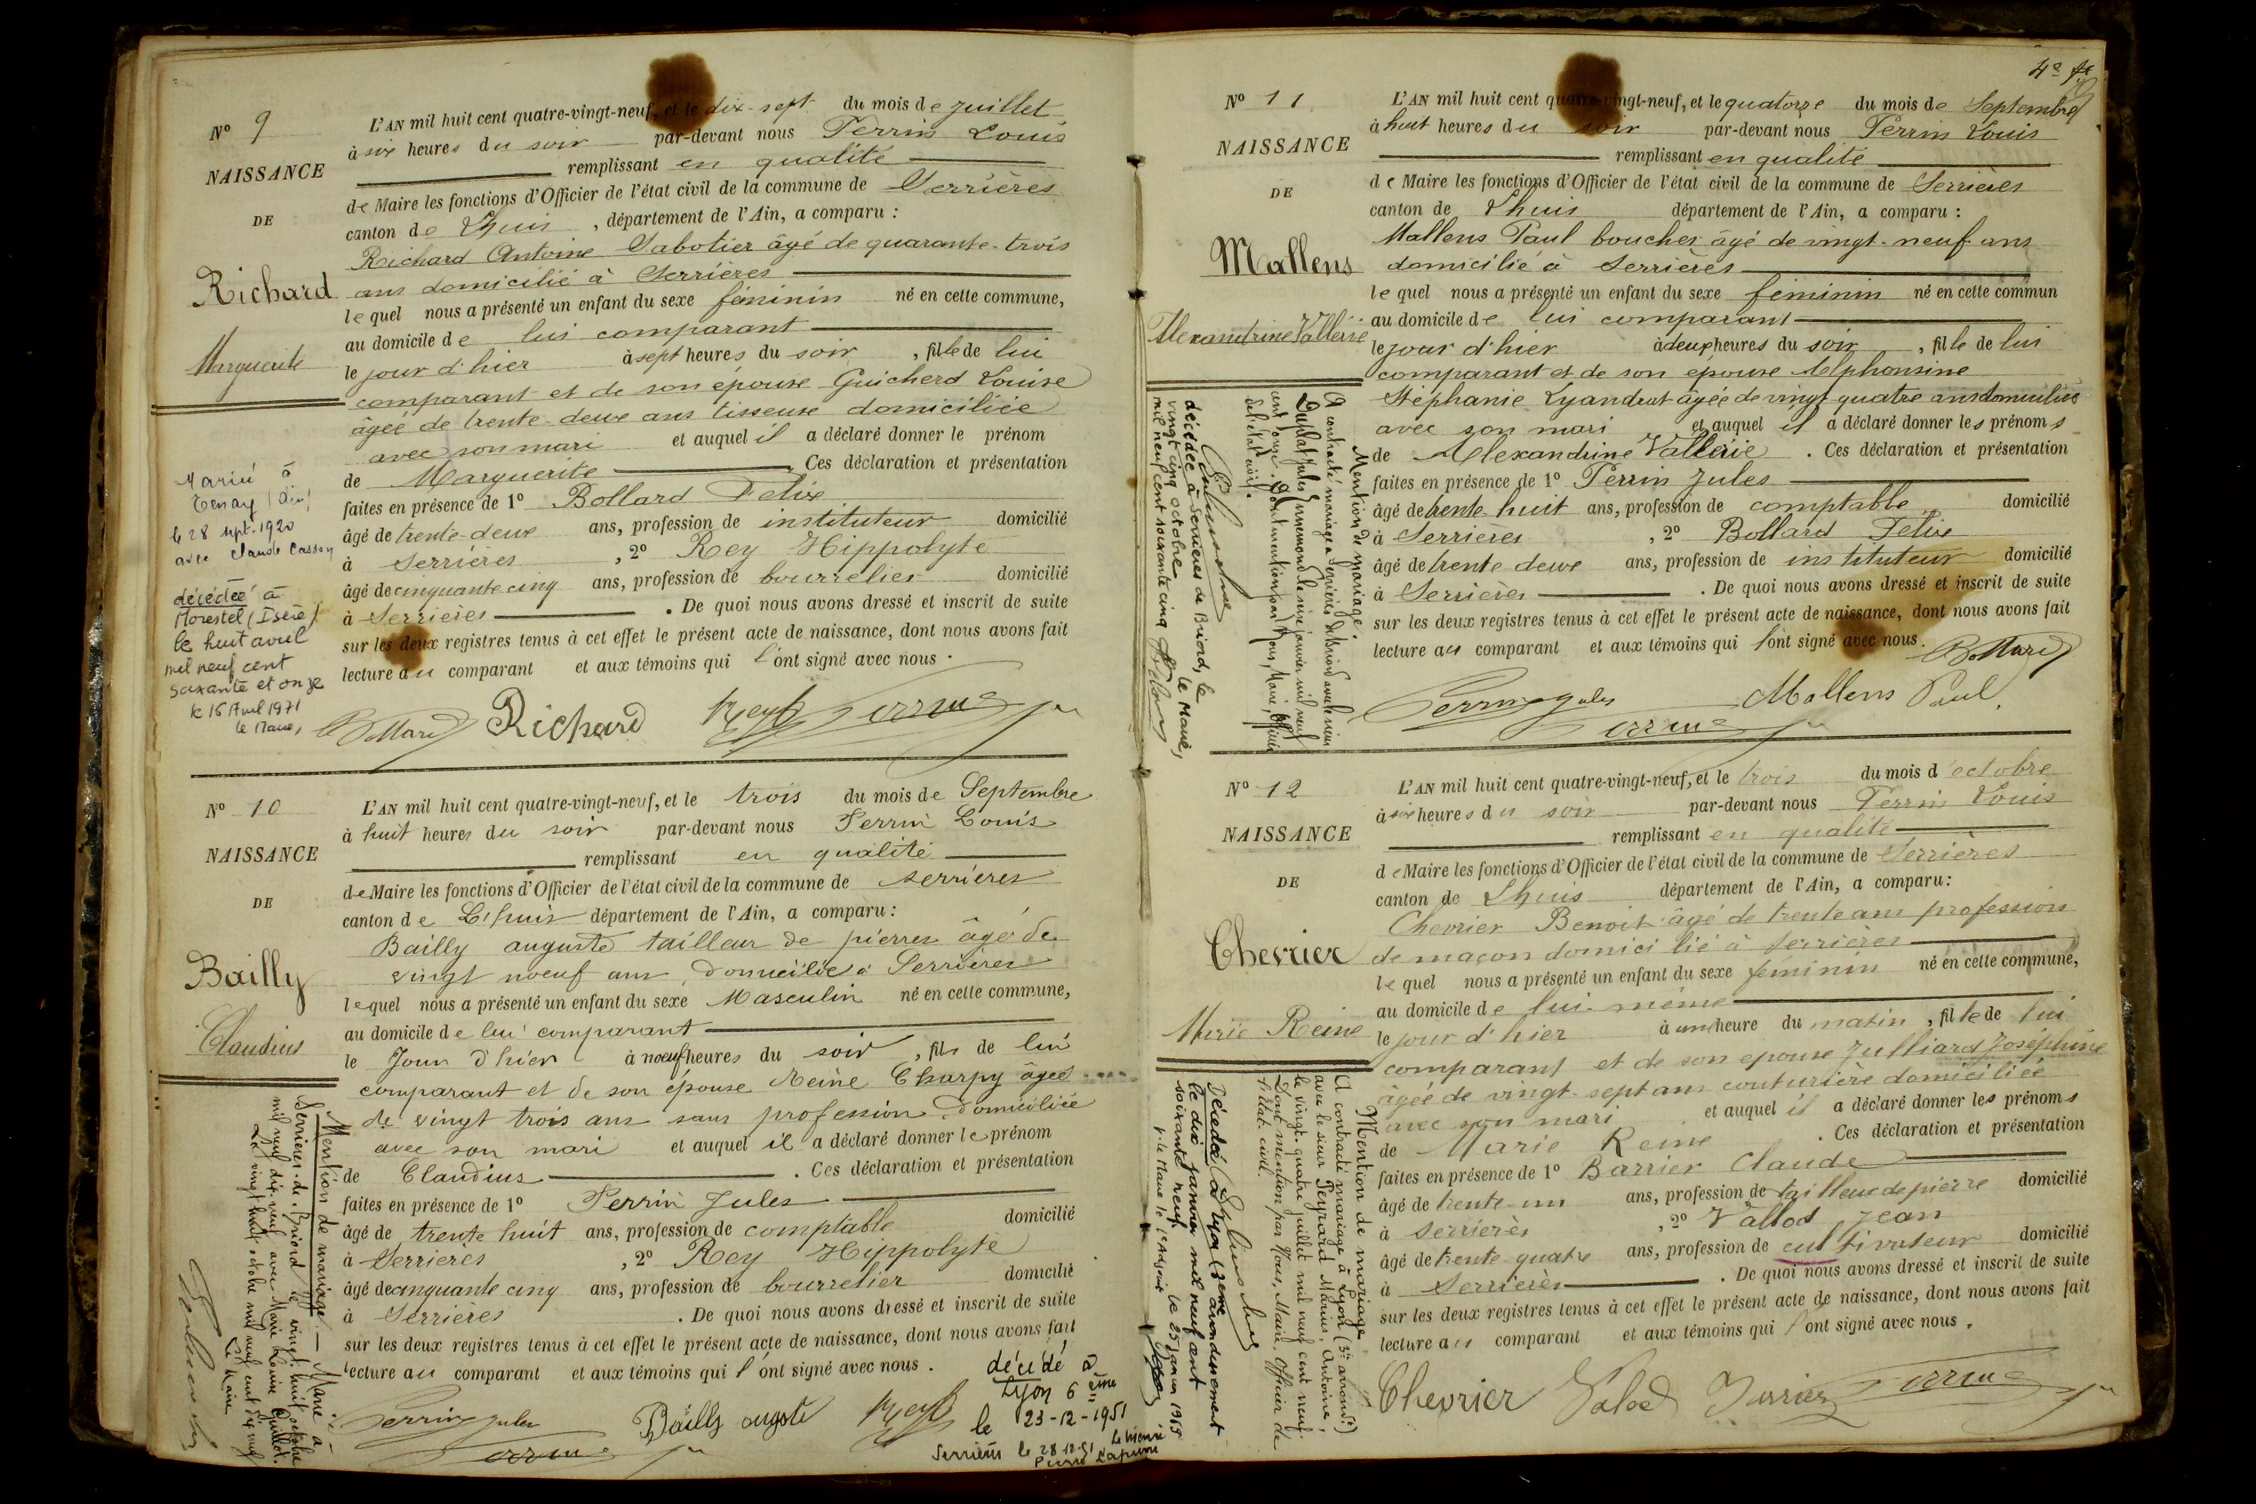 N° 9
NAISSANCE
DE
Richard
Marguerite
L'AN mil huit cent quatre-vingt-neuf, et le dix-sept du mois de juillet
à six heures du soir par-devant nous Perrin Louis
remplissant en qualité
de Maire les fonctions d'Officier de l'état civil de la commune de Serrières
canton de Lhuis, département de l'Ain, a comparu :
Richard Antoine Sabotier âgé de quarante-trois
ans domicilié à Serrières
lequel nous a présenté un enfant du sexe féminin né en cette commune,
au domicile de lui comparant
le jour d'hier à sept heures du soir, fille de lui
comparant et de son épouse Guicherd Louise
âgée de trente-deux ans tisseuse domiciliée
avec son mari et auquel il a déclaré donner le prénom
de Marguerite Ces déclaration et présentation
faites en présence de 1° Bollard Félix
âgé de trente-deux ans, profession de instituteur domicilié
à Serrières, 2° Rey Hippolyte
âgé de cinquante cinq ans, profession de bourrelier domicilié
à Serrières. De quoi nous avons dressé et inscrit de suite
sur les deux registres tenus à cet effet le présent acte de naissance, dont nous avons fait
lecture au comparant et aux témoins qui l'ont signé avec nous.
Mariée à
Tenay (Ain)
le 28 sept. 1920
avec Claude Casson
décédée à
Morestel (Isère)
le huit avril
mil neuf cent
soixante et onze
le 16 Avril 1971
le Maire,
Bollard Richard Rey h Perrin
N° 10
NAISSANCE
DE
Bailly
Claudius
L'AN mil huit cent quatre-vingt-neuf, et le trois du mois de Septembre
à huit heures du soir par-devant nous Perrin Louis
remplissant en qualité
de Maire les fonctions d'Officier de l'état civil de la commune de Serrières
canton de L'huis département de l'Ain, a comparu :
Bailly auguste tailleur de pierres âgé de
vingt noeuf ans domicilié à Serrières
lequel nous a présenté un enfant du sexe Masculin né en cette commune,
au domicile de lui comparant
le Jour d'hier à noeuf heures du soir, fils de lui
comparant et de son épouse Reine Charpy âgée
de vingt trois ans sans profession domiciliée
avec son mari et auquel il a déclaré donner le prénom
de Claudius. Ces déclaration et présentation
faites en présence de 1° Perrin Jules
âgé de trente huit ans, profession de comptable domicilié
à Serrières, 2° Rey Hippolyte
âgé de cinquante cinq ans, profession de bourrelier domicilié
à Serrières. De quoi nous avons dressé et inscrit de suite
sur les deux registres tenus à cet effet le présent acte de naissance, dont nous avons fait
lecture au comparant et aux témoins qui l'ont signé avec nous.
Mention de mariage — Marié à
Serrières-de-Briord le vingt-huit octobre
mil neuf dix-neuf avec Marie Louise Guillot.
Le vingt huit octobre mil neuf cent dix neuf
Le Maire
décédé à
Lyon 6ème
le 23-12-1951
Serrières le 28.12.51
Perrin Jules Bailly auguste Rey h
Perrin
4e
N° 11
NAISSANCE
DE
Mallens
Alexandrine Vallérie
L'AN mil huit cent quatre-vingt-neuf, et le quatorze du mois de Septembre
à huit heures du soir par-devant nous Perrin Louis
remplissant en qualité
de Maire les fonctions d'Officier de l'état civil de la commune de Serrières
canton de Lhuis département de l'Ain, a comparu :
Mallens Paul boucher âgé de vingt-neuf ans
domicilié à Serrières
lequel nous a présenté un enfant du sexe féminin né en cette commun
au domicile de lui comparant
le jour d'hier à deux heures du soir, fille de lui
comparant et de son épouse Alphonsine
Stéphanie Lyandrat âgée de vingt-quatre ans domiciliée
avec son mari et auquel il a déclaré donner les prénoms
de Alexandrine Vallérie. Ces déclaration et présentation
faites en présence de 1° Perrin Jules
âgé de trente-huit ans, profession de comptable domicilié
à Serrières, 2° Bollard Félix
âgé de trente deux ans, profession de instituteur domicilié
à Serrières. De quoi nous avons dressé et inscrit de suite
sur les deux registres tenus à cet effet le présent acte de naissance, dont nous avons fait
lecture au comparant et aux témoins qui l'ont signé avec nous.
Mention de mariage.
A contracté mariage à Serrières de Briord avec le sieur
janvier mil neuf
cent onze. Dont mention par Nous, Maire, Officier
de l'état civil.
décédée à Serrières de Briord, le
vingt cinq octobre
mil neuf cent soixante cinq
Le Maire,
Bollard
Perrin Jules Mallens Paul
Perrin
N° 12
NAISSANCE
DE
Chevrier
Marie Reine
L'AN mil huit cent quatre-vingt-neuf, et le trois du mois d'octobre
à six heures du soir par-devant nous Perrin Louis
remplissant en qualité
de Maire les fonctions d'Officier de l'état civil de la commune de Serrières
canton de Lhuis département de l'Ain, a comparu :
Chevrier Benoit âgé de trente ans profession
de maçon domicilié à Serrières
lequel nous a présenté un enfant du sexe féminin né en cette commune,
au domicile de lui-même
le jour d'hier à une heure du matin, fille de lui
comparant et de son epouse Julliard Joséphine
âgée de vingt-sept ans couturière domiciliée
avec son mari et auquel il a déclaré donner les prénoms
de Marie Reine. Ces déclaration et présentation
faites en présence de 1° Barrier Claude
âgé de trente-un ans, profession de tailleur de pierre domicilié
à Serrières, 2° Vallod Jean
âgé de trente quatre ans, profession de cultivateur domicilié
à Serrières. De quoi nous avons dressé et inscrit de suite
sur les deux registres tenus à cet effet le présent acte de naissance, dont nous avons fait
lecture au comparant et aux témoins qui l'ont signé avec nous.
Mention de mariage
A contracté mariage à Lyon (3e arrondt)
avec le sieur Peyrard Marius, Antoine,
le vingt-quatre juillet mil neuf cent neuf.
Dont mention par Nous, Maire, Officier de
l'état civil.
Décédée à Lyon (3eme arrondissement
le dix janvier mil neuf cent
soixante neuf. Le 25 janvier 1969
p. le Maire
Chevrier Valod Barrier Perrin